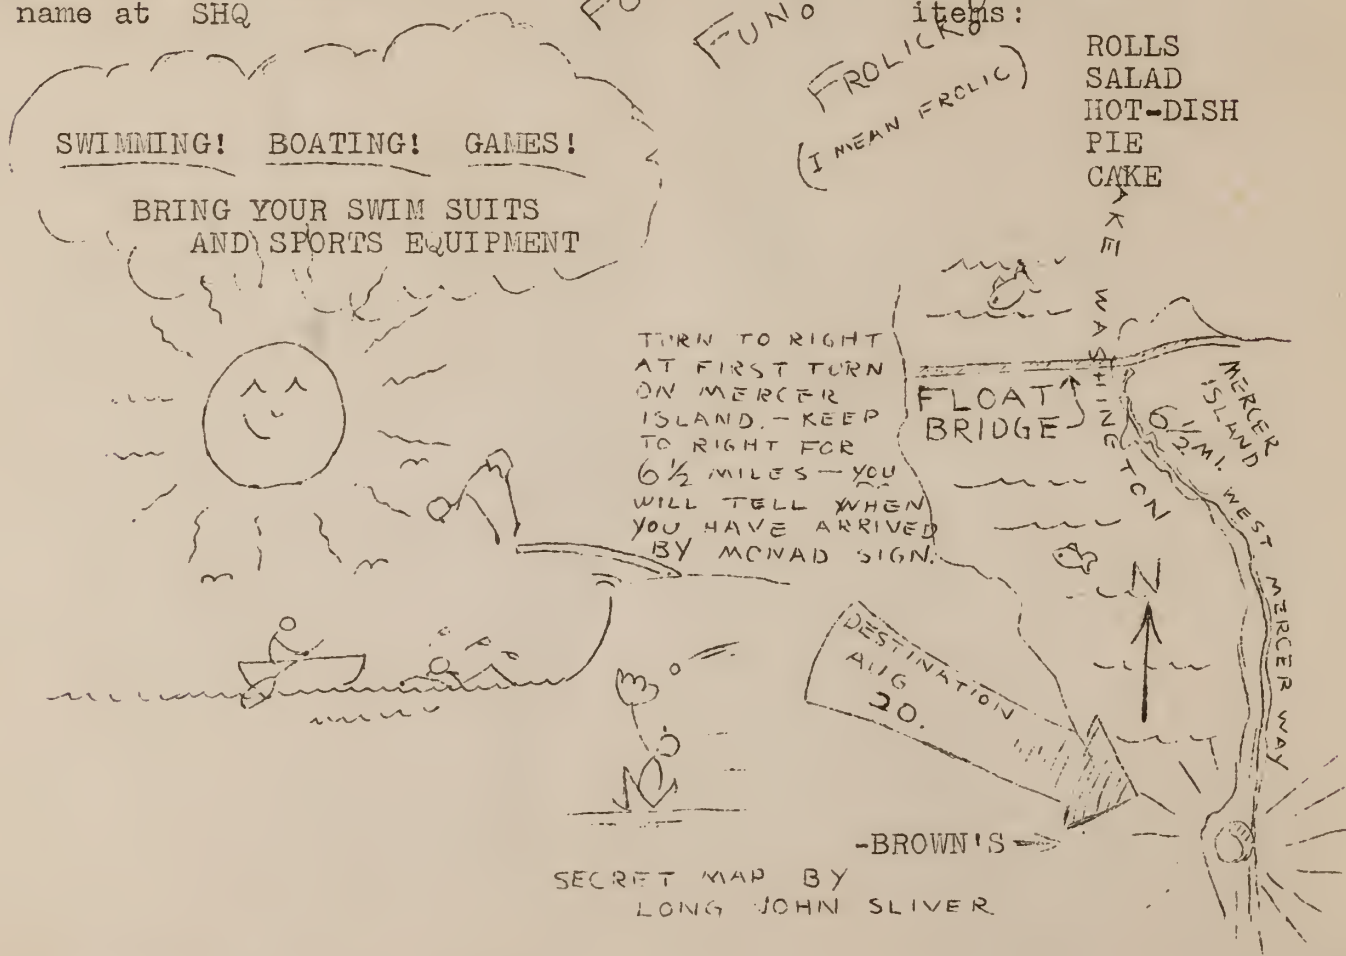 name at SHQ
items:
FUN
FROLICK
(I MEAN FROLIC)
ROLLS
SALAD
HOT-DISH
PIE
CAKE
SWIMMING! BOATING! GAMES!
BRING YOUR SWIM SUITS
AND SPORTS EQUIPMENT
LAKE WASHINGTON
TURN TO RIGHT
AT FIRST TURN
ON MERCER
ISLAND. - KEEP
TO RIGHT FOR
6½ MILES - YOU
WILL TELL WHEN
YOU HAVE ARRIVED
BY MONAD SIGN.
FLOAT
BRIDGE
MERCER
ISLAND
6½ MI.
WEST MERCER WAY
N
DESTINATION
AUG
20.
-BROWN'S
SECRET MAP BY
LONG JOHN SLIVER